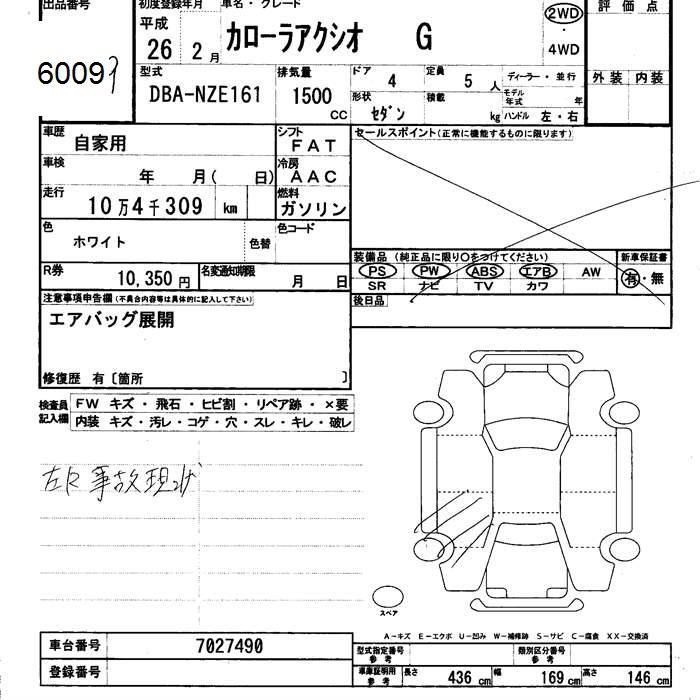 出品番号
初度登録年月
車名・グレード
2WD
・
4WD
評価点
平成
26 2月
カローラアクシオ G
60099
型式
DBA-NZE161
排気量
1500 CC
ドア 4
定員 5 人
ディーラー・並行
外装 内装
形状 セダン
積載 kg
モデル年式 年
ハンドル 左・右
車歴 自家用
シフト FAT
セールスポイント(正常に機能するものに限ります)
車検 年 月( 日)
冷房 AAC
走行 10万4千309 km
燃料 ガソリン
色 ホワイト
色替
色コード
装備品 (純正品に限り〇をつけてください)
新車保証書
PS PW ABS エアB AW
有・無
SR ナビ TV カワ
R券 10,350円
名変通知期限 月 日
後日品
注意事項申告欄(不具合内容等は具体的に記入して下さい)
エアバッグ展開
修復歴 有〔箇所 〕
検査員記入欄
FW キズ・飛石・ヒビ割・リペア跡・×要
内装 キズ・汚レ・コゲ・穴・スレ・キレ・破レ
左R事故現状
スペア
A-キズ E-エクボ U-凹み W-補修跡 S-サビ C-腐食 XX-交換済
車台番号 7027490
登録番号
型式指定番号 参考
類別区分番号 参考
車庫証明用 参考
長さ 436 cm 幅 169 cm 高さ 146 cm